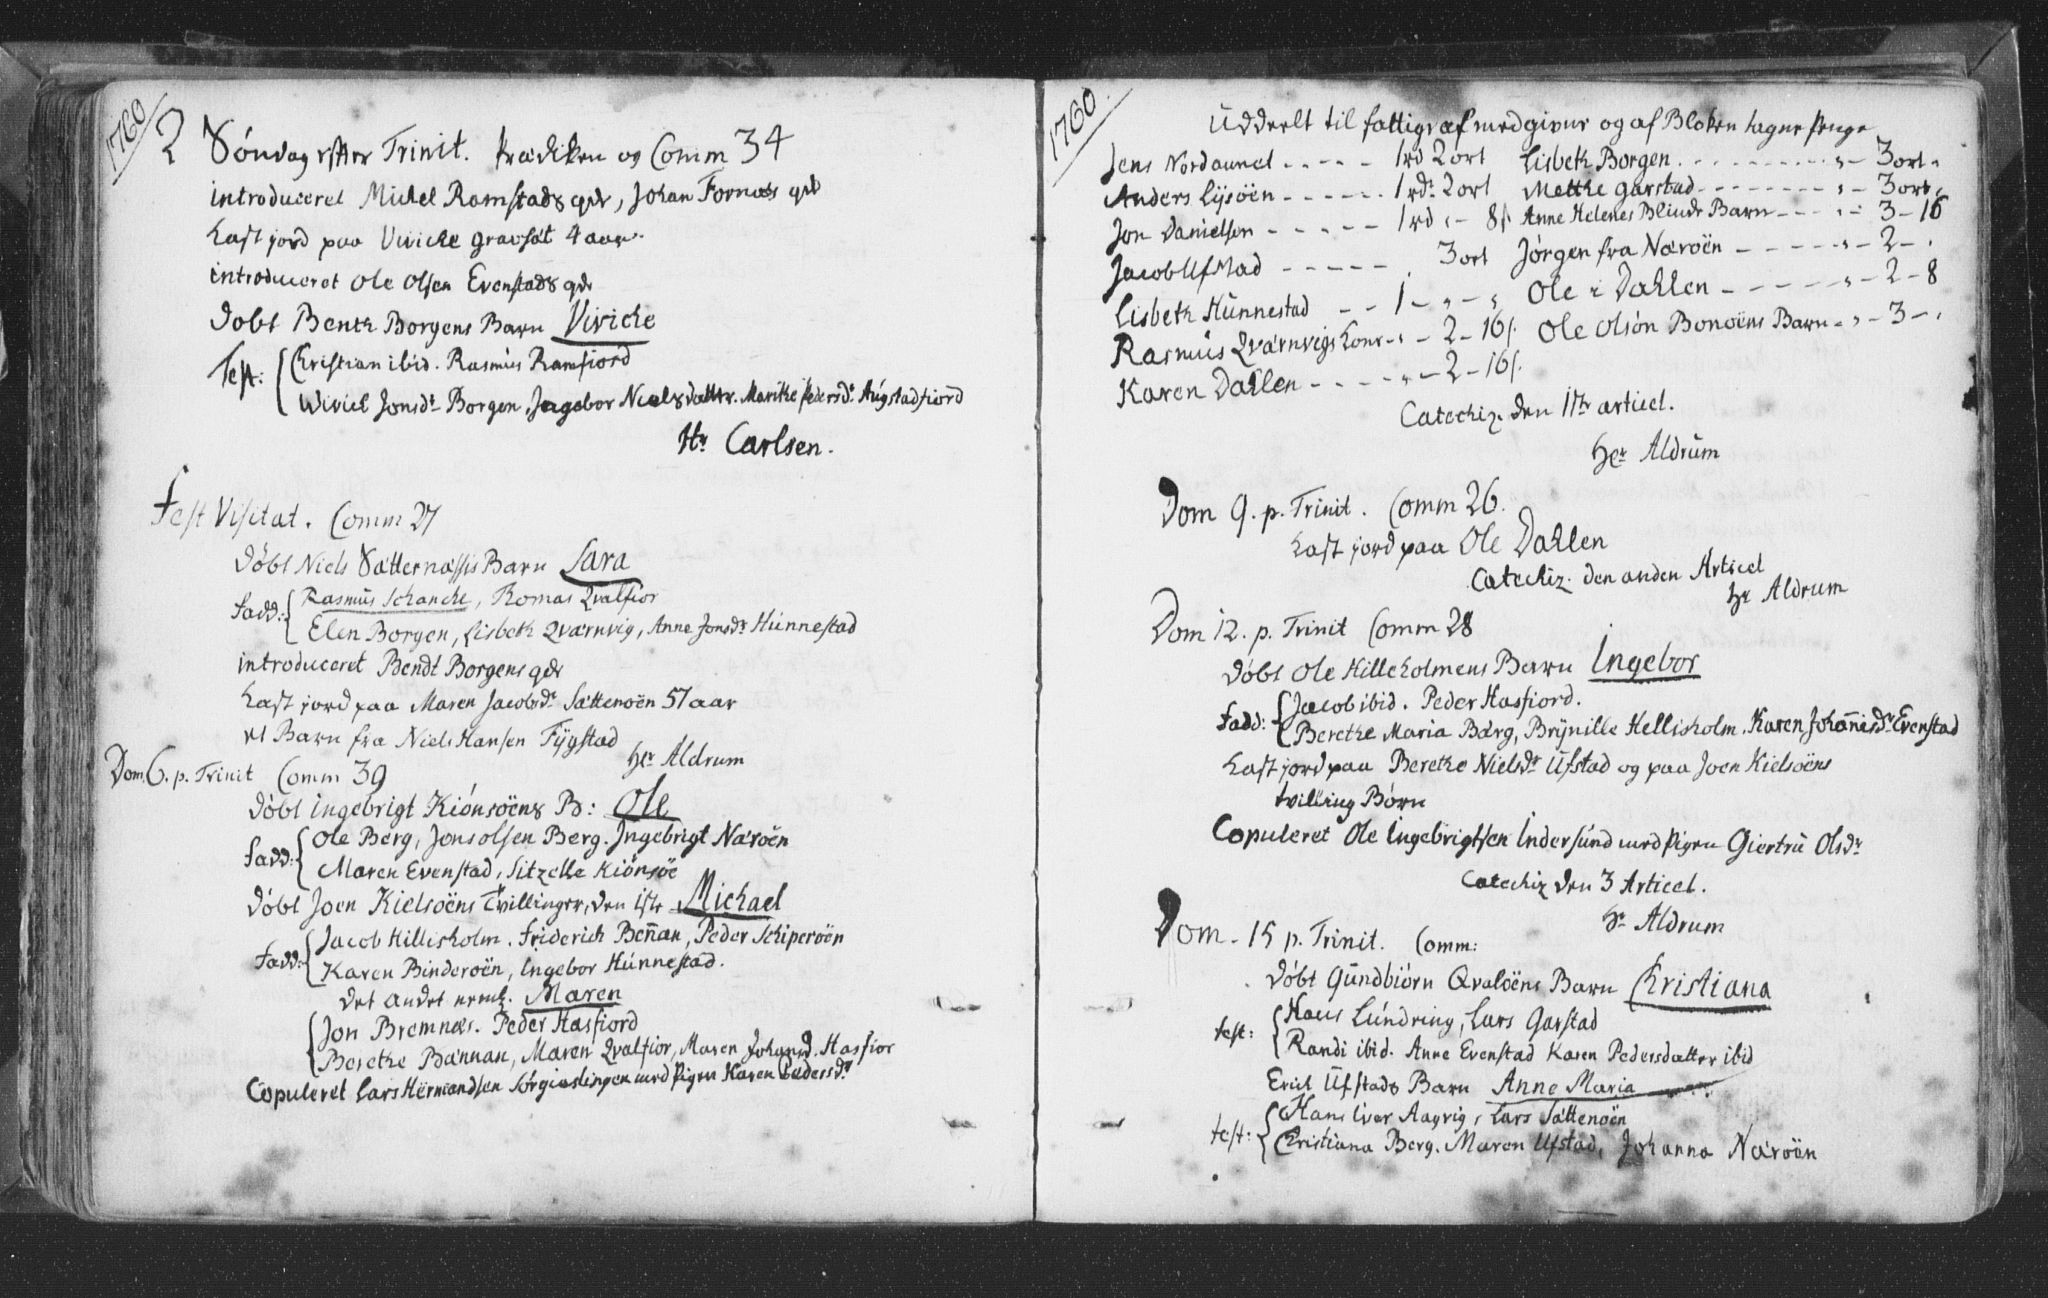 1760
2 Søndag efter Trinit. Prædiken og Comm 34
introduceret Michel Ramstads qde, Johan Fornæs qde
Kast jord paa Viviche gravsat 4 aar.
introduceret Ole Olsen Evenstads qde
Døbt Benth Borgens Barn Viviche
Test: Christian ibid. Rasmus Ramfiord
Wivich Jonsdr Borgen, Ingebor Nielsdatter. Marithe Pedersdr Augstadfiord
Hr Carlsen.
Fest Visitat. Comm 27
Døbt Niels Sætternæssis Barn Sara
Fadd: Rasmus Schancke, Thomas Qvalfior
Elen Borgen, Lisbeth Qværnvig, Anne Jonsdr Hunnestad
introduceret Bendt Borgens qde
Kast jord paa Maren Jacobsdr Sættenøen 57 aar
et Barn fra Niels Hansen Fygstad
Hr Aldrum
Dom. 6. p. Trinit Comm 39
Døbt ingebrigt Kiønsøens B: Ole
Fadd: Ole Berg, Jons olsen Berg. Ingebrigt Nærøen
Maren Evenstad, Sitzelle Kiønsøe
Døbt Joen Kielsøens Tvillinger, den 1ste Michael
Fadd: Jacob Hillisholm. Friderich Beñan, Peder Schiperøen
Karen Binderøen, Ingebor Hunnestad.
det andet neml. Maren
Jon Bremnæs. Peder Hasfiord
Berethe Bænnan, Maren Qvalfior, Maren Johansd. Hasfior
Copuleret Lars Hermandsen med Pigen Karen Pedersdr
1760.
Uddeelt til fattige af medgivne og af Bloken tagne Penge
Jens Nordaunet - - - - - 1rd 2ort Lisbeth Borgen. - - - - - - - - „ - 3ort.
Anders Lysøen - - - - - - 1rdr 2ort Mette garstad - - - - - - - „ - 3ort.
Jon Danielsen - - - - - - 1rd „ - 8s Anne Helenes Blinde Barn - - - „ - 3 - 16
Jacob Ufstad - - - - - - . 3ort Jørgen fra Nærøen - - - - - „ - 2 - .
Lisbeth Hunnestad - - 1 - „ - „ Ole i Dahlen - - - - - „ - 2 - 8
Rasmus Qværnvigs Kone - „ - 2 - 16s. Ole Olsøn Bonøens Barn - „ - 3 - .
Karen Dahlen - - - - „ - 2 - 16s.
Catechiz. den 1te articel.
Her Aldrum
Dom 9. p. Trinit. Comm 26.
Kast jord paa Ole Dahlen
Catechiz. den anden Articel
Hr Aldrum
Dom 12. p. Trinit Comm 28
Døbt Ole Hilleholmens Barn Ingebor
Fadd: Jacob ibid. Peder Hasfiord.
Berethe Maria Bærg, Brynille Hellisholm, Karen Johañesdr Evenstad
Kast jord paa Berethe Nielsdr Ufstad og paa Joen Kielsøens
tvilling Børn
Copuleret Ole Ingebrigtsen Indersund med Pigen Giertru Olsdr
Catechiz den 3 Articel.
Hr Aldrum
Dom. 15 p. Trinit. Comm:
Døbt Gundbiørn Qvaløens Barn Christiana
Test: Hans Lundring, Lars Garstad
Randi ibid. Anne Evenstad Karen Pedersdatter ibid
Erich Ufstads Barn Anne Maria
Test: Hans Iver Aagvig, Lars Sættenøen
Christiana Berg. Maren Ufstad, Johanna Nærøen